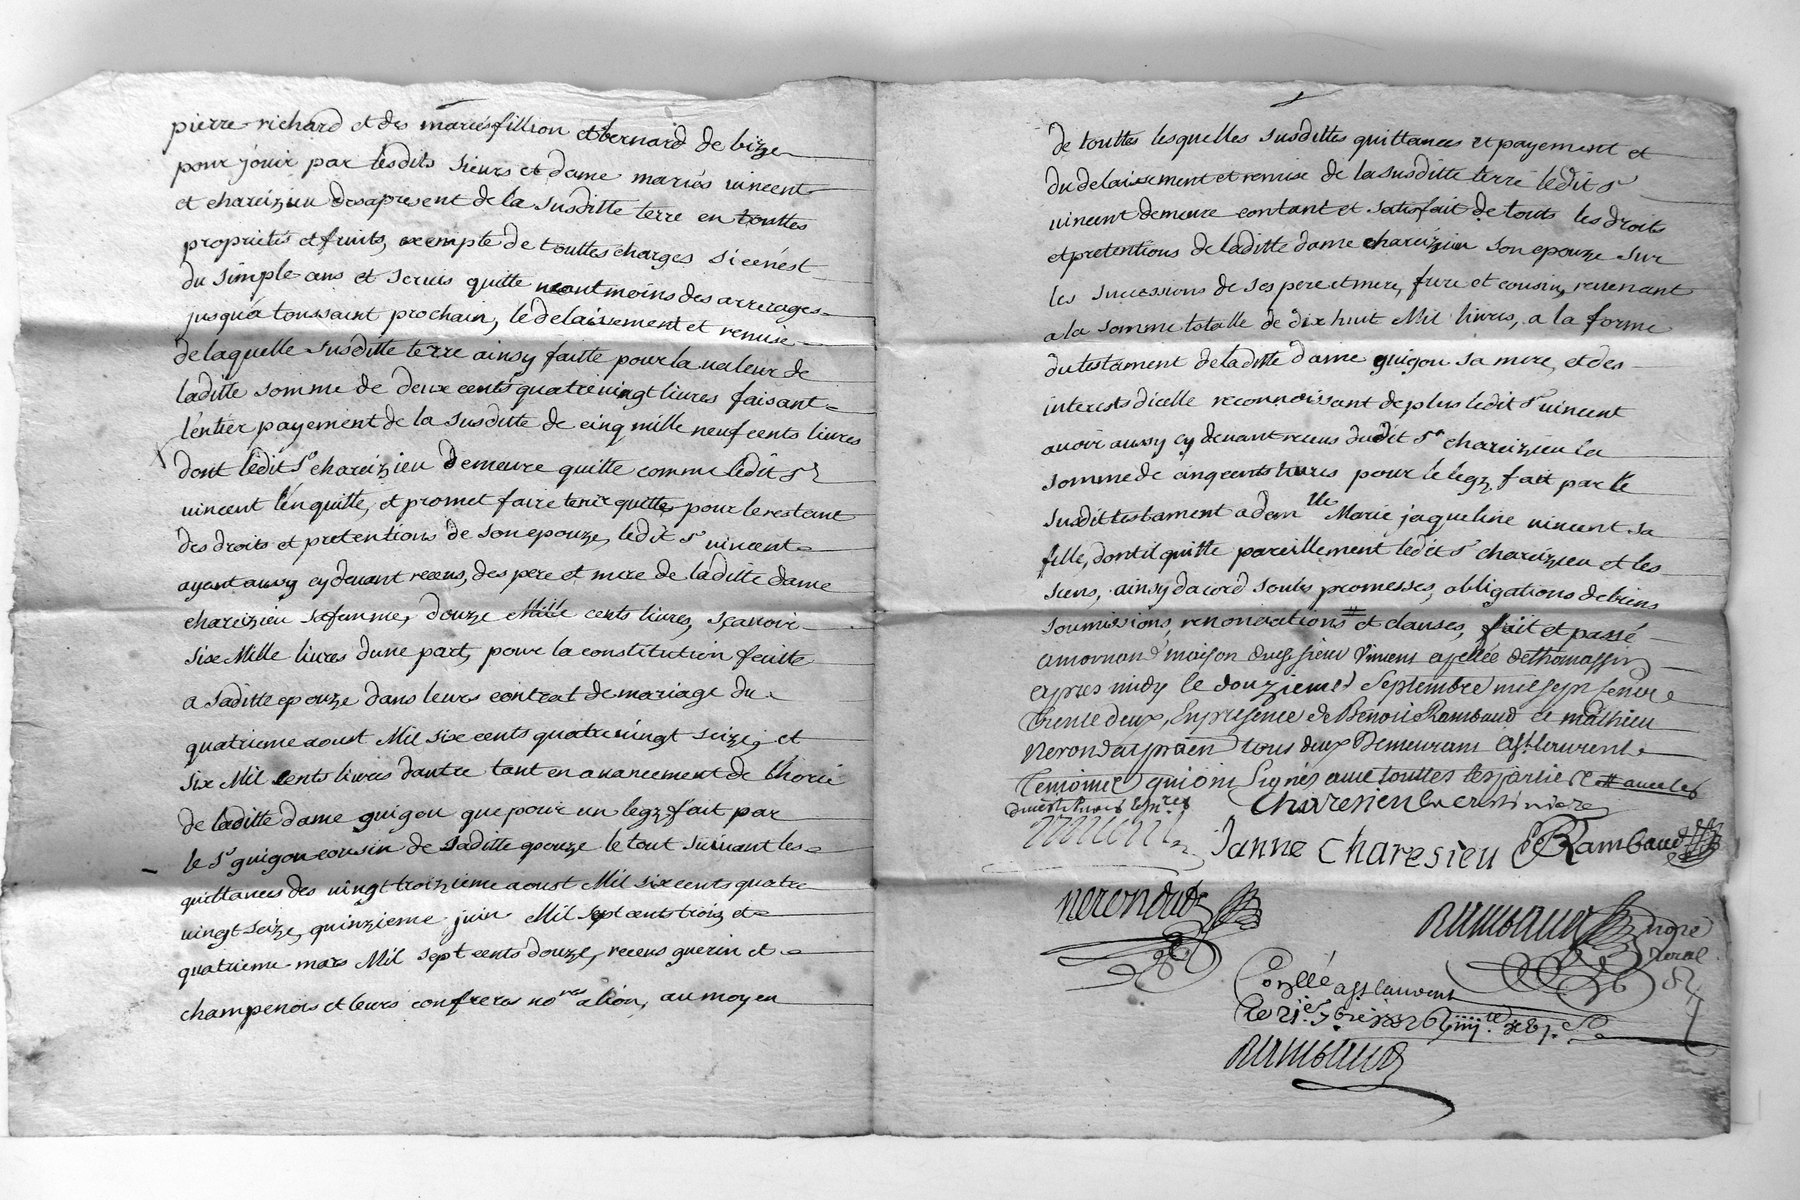 pierre richard et des mariés fillion et bernard de bizze
pour jouir par lesdits sieurs et dame mariés vincent
et chareizieu desapresent de la susditte terre en touttes
proprietés et fruits, exempte de touttes charges si cenést
du simple ans et servis quitte neantmoins des arrerages
jusquá toussaint prochain, lé delaissement et remise
de laquelle susditte terre ainsy faitte pour la valeur de
laditte somme de deux cents quatrevingt livres faisant
léntier payement de la susditte de cinq mille neuf cents livres
dont lédit Sr chareizieu demeure quitte comme lédit Sr
vincent lén quitte, et promet faire tenir quitte pour le restant
des droits et pretentions de son epouze, ledit Sr vincent
ayant aussy cy devant receus, des pere et mere de laditte dame
chareizieu sa femme, douze Mille cents livres, sçavoir
sixe Mille livres dune part, pour la constitution faitte
a saditte epouze dans leurs contrat de mariage du
quatrieme aoust Mil sixe cents quatrevingt seize, et
six Mil cents livres dautre tant en avancement de lhoirie
de laditte dame guigou que pour un legz fait par
le Sr guigou cousin de saditte epouze le tout suivant les
quittances des vingt troizieme aoust Mil sixe cents quatre
vingt seize, quinzieme juin Mil sept cents trois, et
quatrieme mars Mil sept cents douze, receus guerin et
champenois et leurs confreres nores a lion, au moyen
de touttes lesquelles susdittes quittances et payement et
du delaissement et remise de la susditte terre lédit Sr
vincent demeure contant et satisfait de touts les droits
et pretentions de laditte dame chareizieu son epouze sur
les successions de ses pere et mere, frere et cousin, revenant
a la somme totalle de dix huit Mil livres, a la forme
du testament de laditte dame guigou sa mere, et des
interests dicelle reconnoissant de plus ledit Sr vincent
avoir aussy cy devant receus dudit Sr chareizieu la
somme de cinq cents livres pour le legz fait par le
susdit testament a demlle Marie jaqueline vincent sa
fille, dont il quitte pareillement ledit Sr chareizieu et les
siens, ainsy dacord soubs promesses, obligations de biens
soumissions, renonciations # et clauses, fait et passé
a mornand maison dud sieur Vincent appellée de thomassin
apres midy le douzieme Septembre mil sept cent
trente deux, En presence de Benoit Rambaud et mathieu
Nerondat tous deux Demeurans a St laurent
temoins qui ont signés avec touttes les parties # avec les
Charesieu la cristiniere
Vincent
Janne Charesieu B Rambaud
nerondat
Rambaud nore
Royal
Conllé a St laurent
Le 21e 7bre 1732
Rambaud